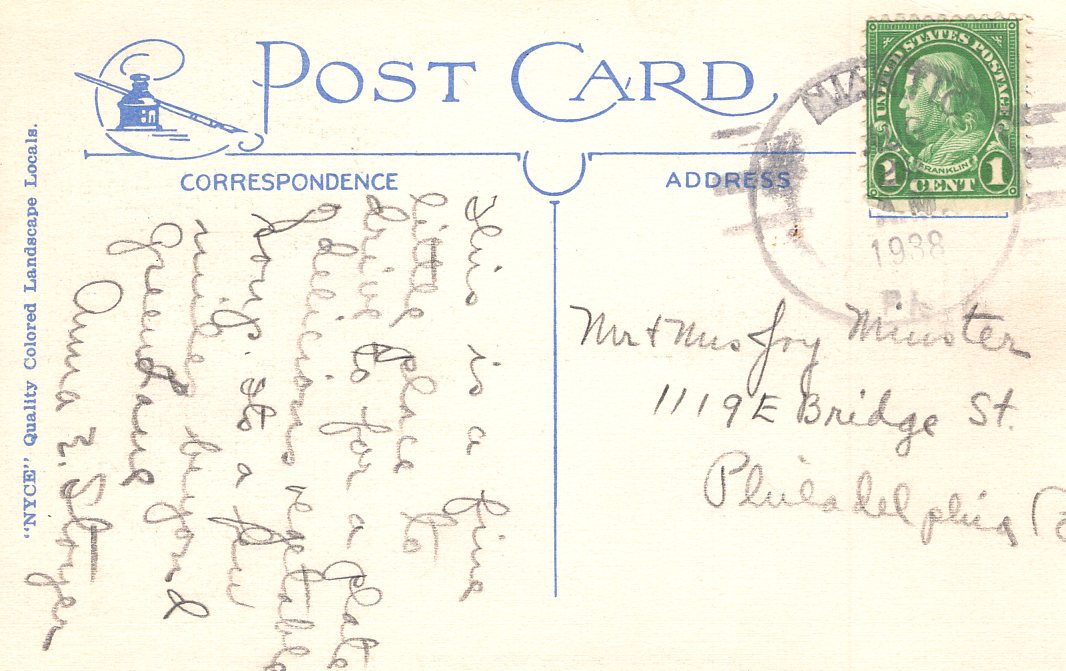 POST CARD
CORRESPONDENCE
ADDRESS
UNITED STATES POSTAGE
FRANKLIN
1 CENT 1
1938
PA.
This is a fine
little place to
drive to for a plate
of delicious vegetable
soup. Its a few
miles beyond
Greenbane
Anna E. Stover
Mr & Mrs Joy Minster
1119 E Bridge St.
Philadelphia Pa
"NYCE" Quality Colored Landscape Locals.